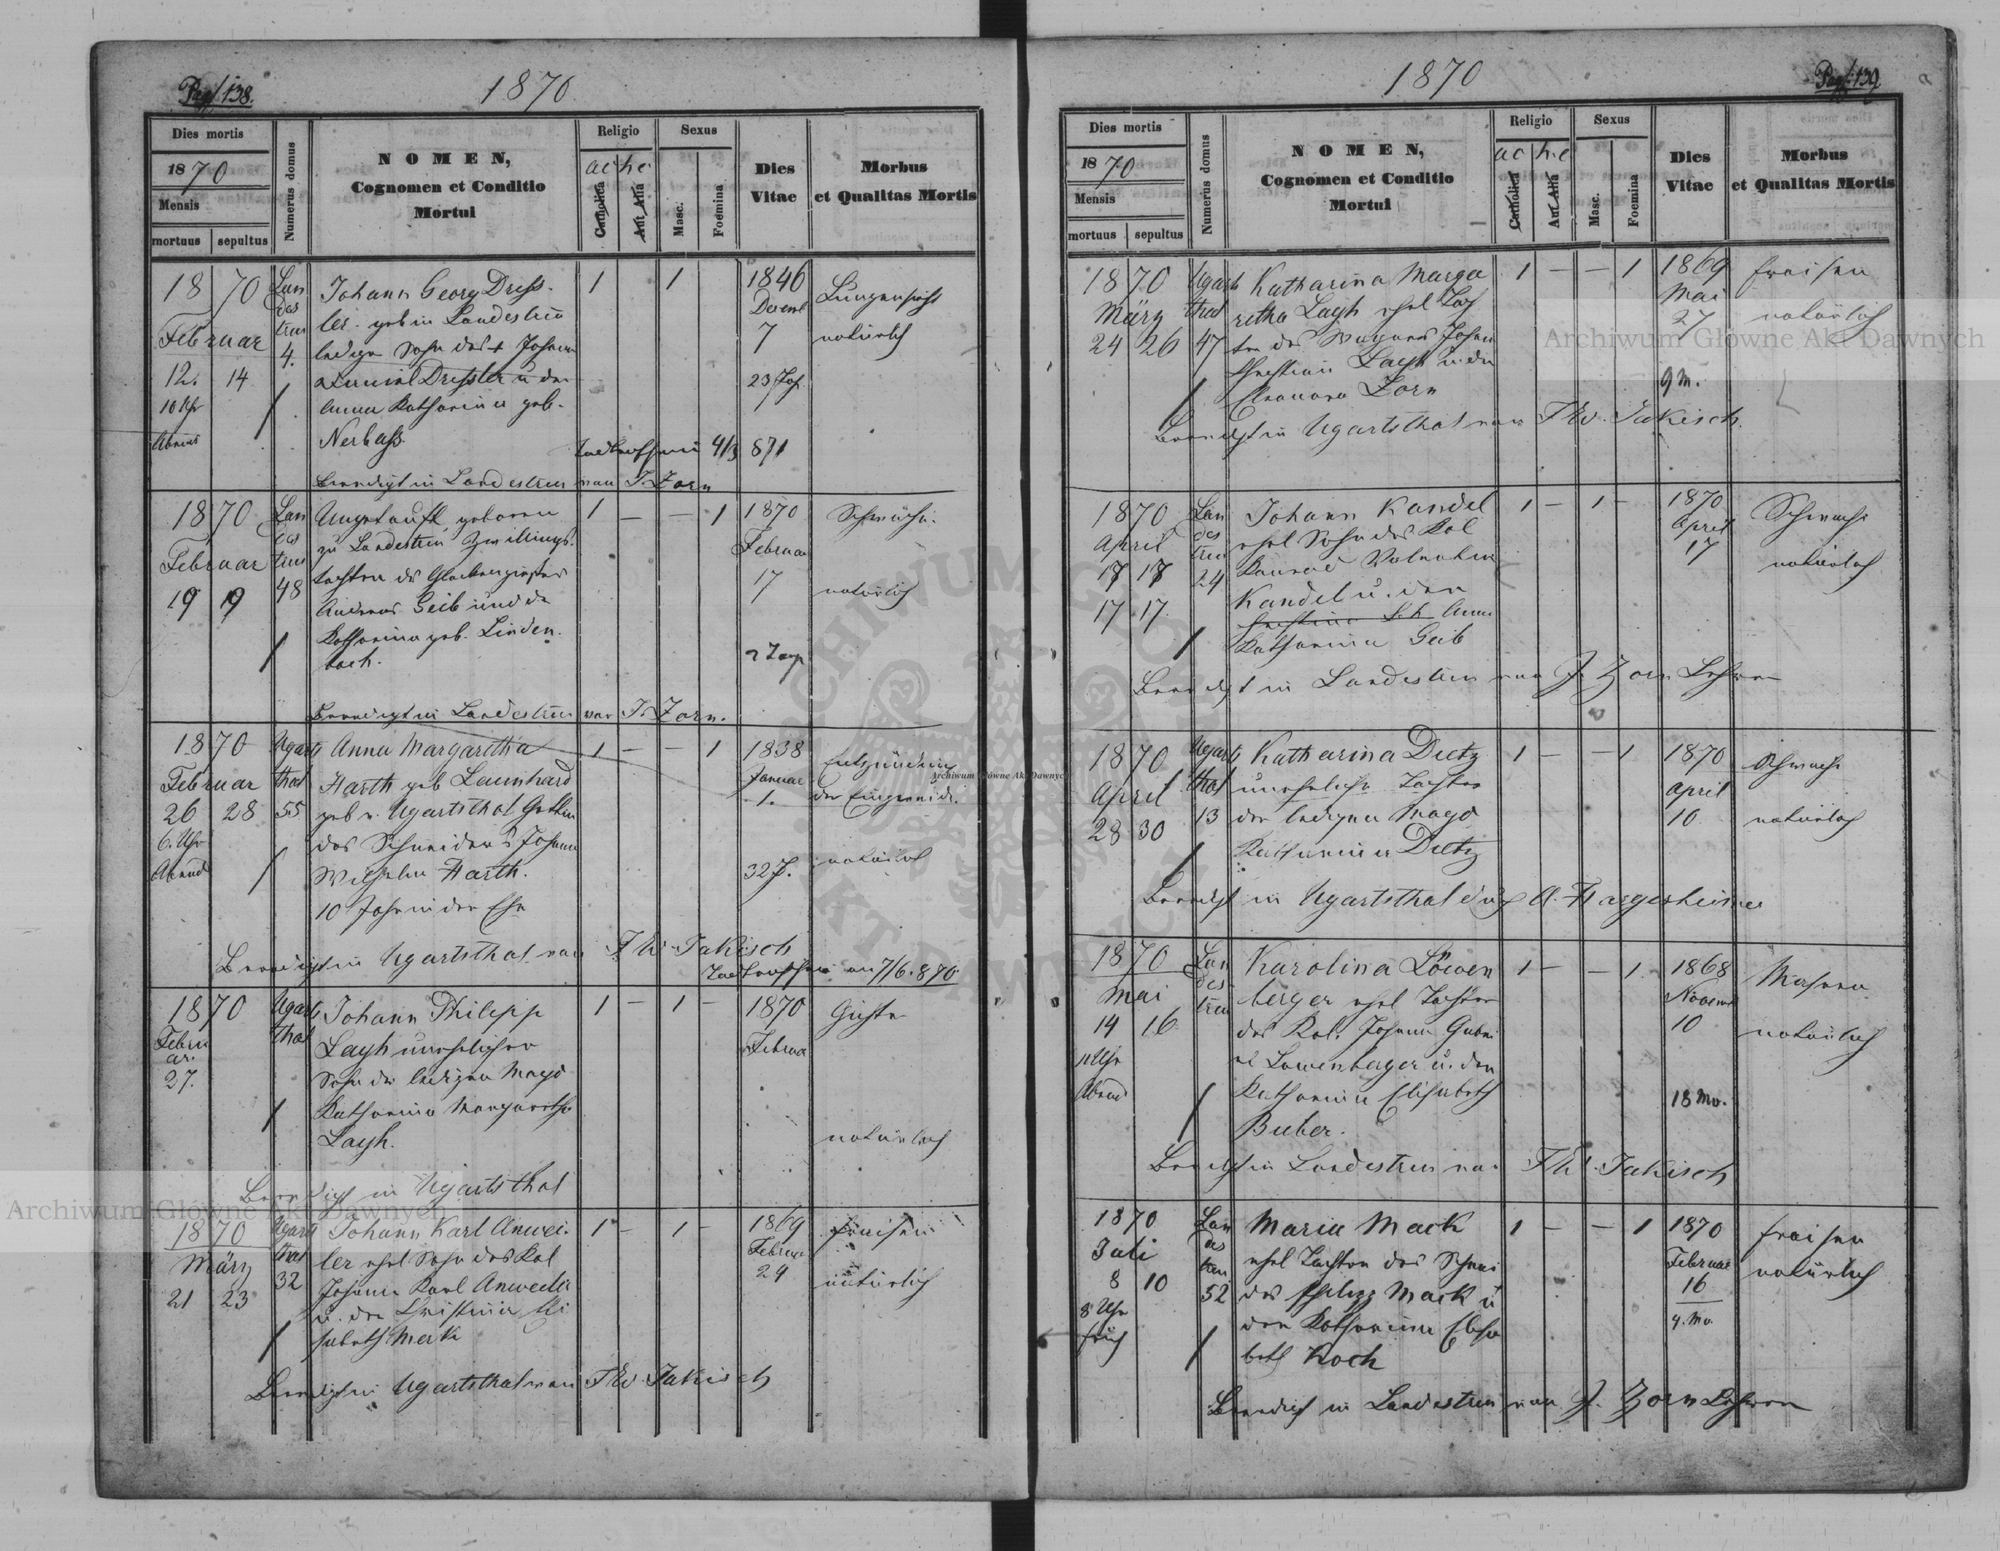 Pag. 138.
1870
Dies mortis
1870
Mensis
mortuus sepultus
Numerus domus
NOMEN,
Cognomen et Conditio
Mortui
Religio
ac hc
Catholica
Aut Alia
Sexus
Masc.
Foemina
Dies
Vitae
Morbus
et Qualitas Mortis
1870
Februar
12. 14
10 Uhr
Abends
Lan
des
treu
4.
Johann Georg Dress-
ler geb in Landestreu
lediger Sohn des + Johann
Daniel Dressler u der
Anna Katharina geb.
Nerbass
1 1
1846
Decemb
7
23 Jah
Lungensucht
natürlich
4/3 871
Beerdigt in Landestreu von J. Zorn
1870
Februar
19 19
Lan
des
treu
48
Ungetauft geboren
zu Landestreu Zwillings
tochter des Glockengiesser
Andreas Geib und der
Katharina geb. Linden-
bach.
1 — — 1
1870
Februar
17
2 Tage
Schwäche.
natürlich
Beerdigt in Landestreu von J. Zorn.
1870
Februar
26 28
6. Uhr
Abend
Ugarts
thal
55
Anna Margaretha
Harth geb Launhard
geb. v. Ugartsthal Gattin
des Schneiders Johann
Wilhelm Harth.
10 Jahr in der Ehe
1 — — 1
1838
Januar
1.
32 J.
Entzündung
der Eingeweide.
natürlich
Beerdigt in Ugartsthal von Th. Jakisch
am 7/6. 870.
1870
Febru
ar.
27.
Ugarts
thal
Johann Philipp
Layh unehelicher
Sohn der ledigen Magd
Katharina Margaretha
Layh.
1 — 1 —
1870
Februar
Gichter
natürlich
Beerdigt in Ugartsthal
1870
März
21 23
Ugarts
thal
32
Johann Karl Anwei-
ler ehel Sohn des Kol
Johann Karl Anweiler
u. der Christina Eli
sabeth Merk
1 — 1 —
1869
Februar
24
Fraisen
natürlich
Beerdigt in Ugartsthal von Th. Jakisch
Pag. 139.
1870
Dies mortis
1870
Mensis
mortuus sepultus
Numerus domus
NOMEN,
Cognomen et Conditio
Mortui
Religio
ac h.c
Catholica
Aut Alia
Sexus
Masc.
Foemina
Dies
Vitae
Morbus
et Qualitas Mortis
1870
März
24 26
Ugarts
thal
47
Katharina Marga
retha Layh ehel Toch
ter des Wagners Johann
Christian Layh u der
Eleonora Zorn
1 — — 1
1869
Mai
27
9 M.
Fraisen
natürlich
Beerdigt in Ugartsthal von Th. Jakisch.
1870
April
17 17
17 17.
Lan
des
treu
24
Johann Kandel
ehel Sohn des Kol
Konrad Valentin
Kandel u. der
Anna
Katharina Geib
1 — 1 —
1870
April
17
Schwäche
natürlich
Beerdigt in Landestreu von J. Zorn Lehrer
1870
April
28 30
Ugarts
thal
13
Katharina Dietz
uneheliche Tochter
der ledigen Magd
Katharina Dietz
1 — — 1
1870
April
10
Schwäche
natürlich
Beerdigt in Ugartsthal durch A. Hargesheimer
1870
Mai
14 16
11 Uhr
Abend
Lan
des
treu
Karolina Löwen
berger ehel Tochter
des Kol. Johann Gabri
el Lowenberger u. der
Katharina Elisabeth
Buber.
1 — — 1
1868
Novemb
10
18 Mo.
Masern
natürlich
Beerdigt in Landestreu von Th. Jakisch
1870
Juli
8 10
8 Uhr
früh
Lan
des
treu
52
Maria Mack
ehel Tochter des Schnei
des Philipp Mack u
der Katharina Elisa
beth Koch
1 — — 1
1870
Februar
16
4. Mo
Fraisen
natürlich
Beerdigt in Landestreu von J. Zorn Lehrer
Archiwum Główne Akt Dawnych
Archiwum Główne Akt Dawnych
Archiwum Główne Akt Dawnych
ARCHIWUM GŁÓWNE AKT DAWNYCH